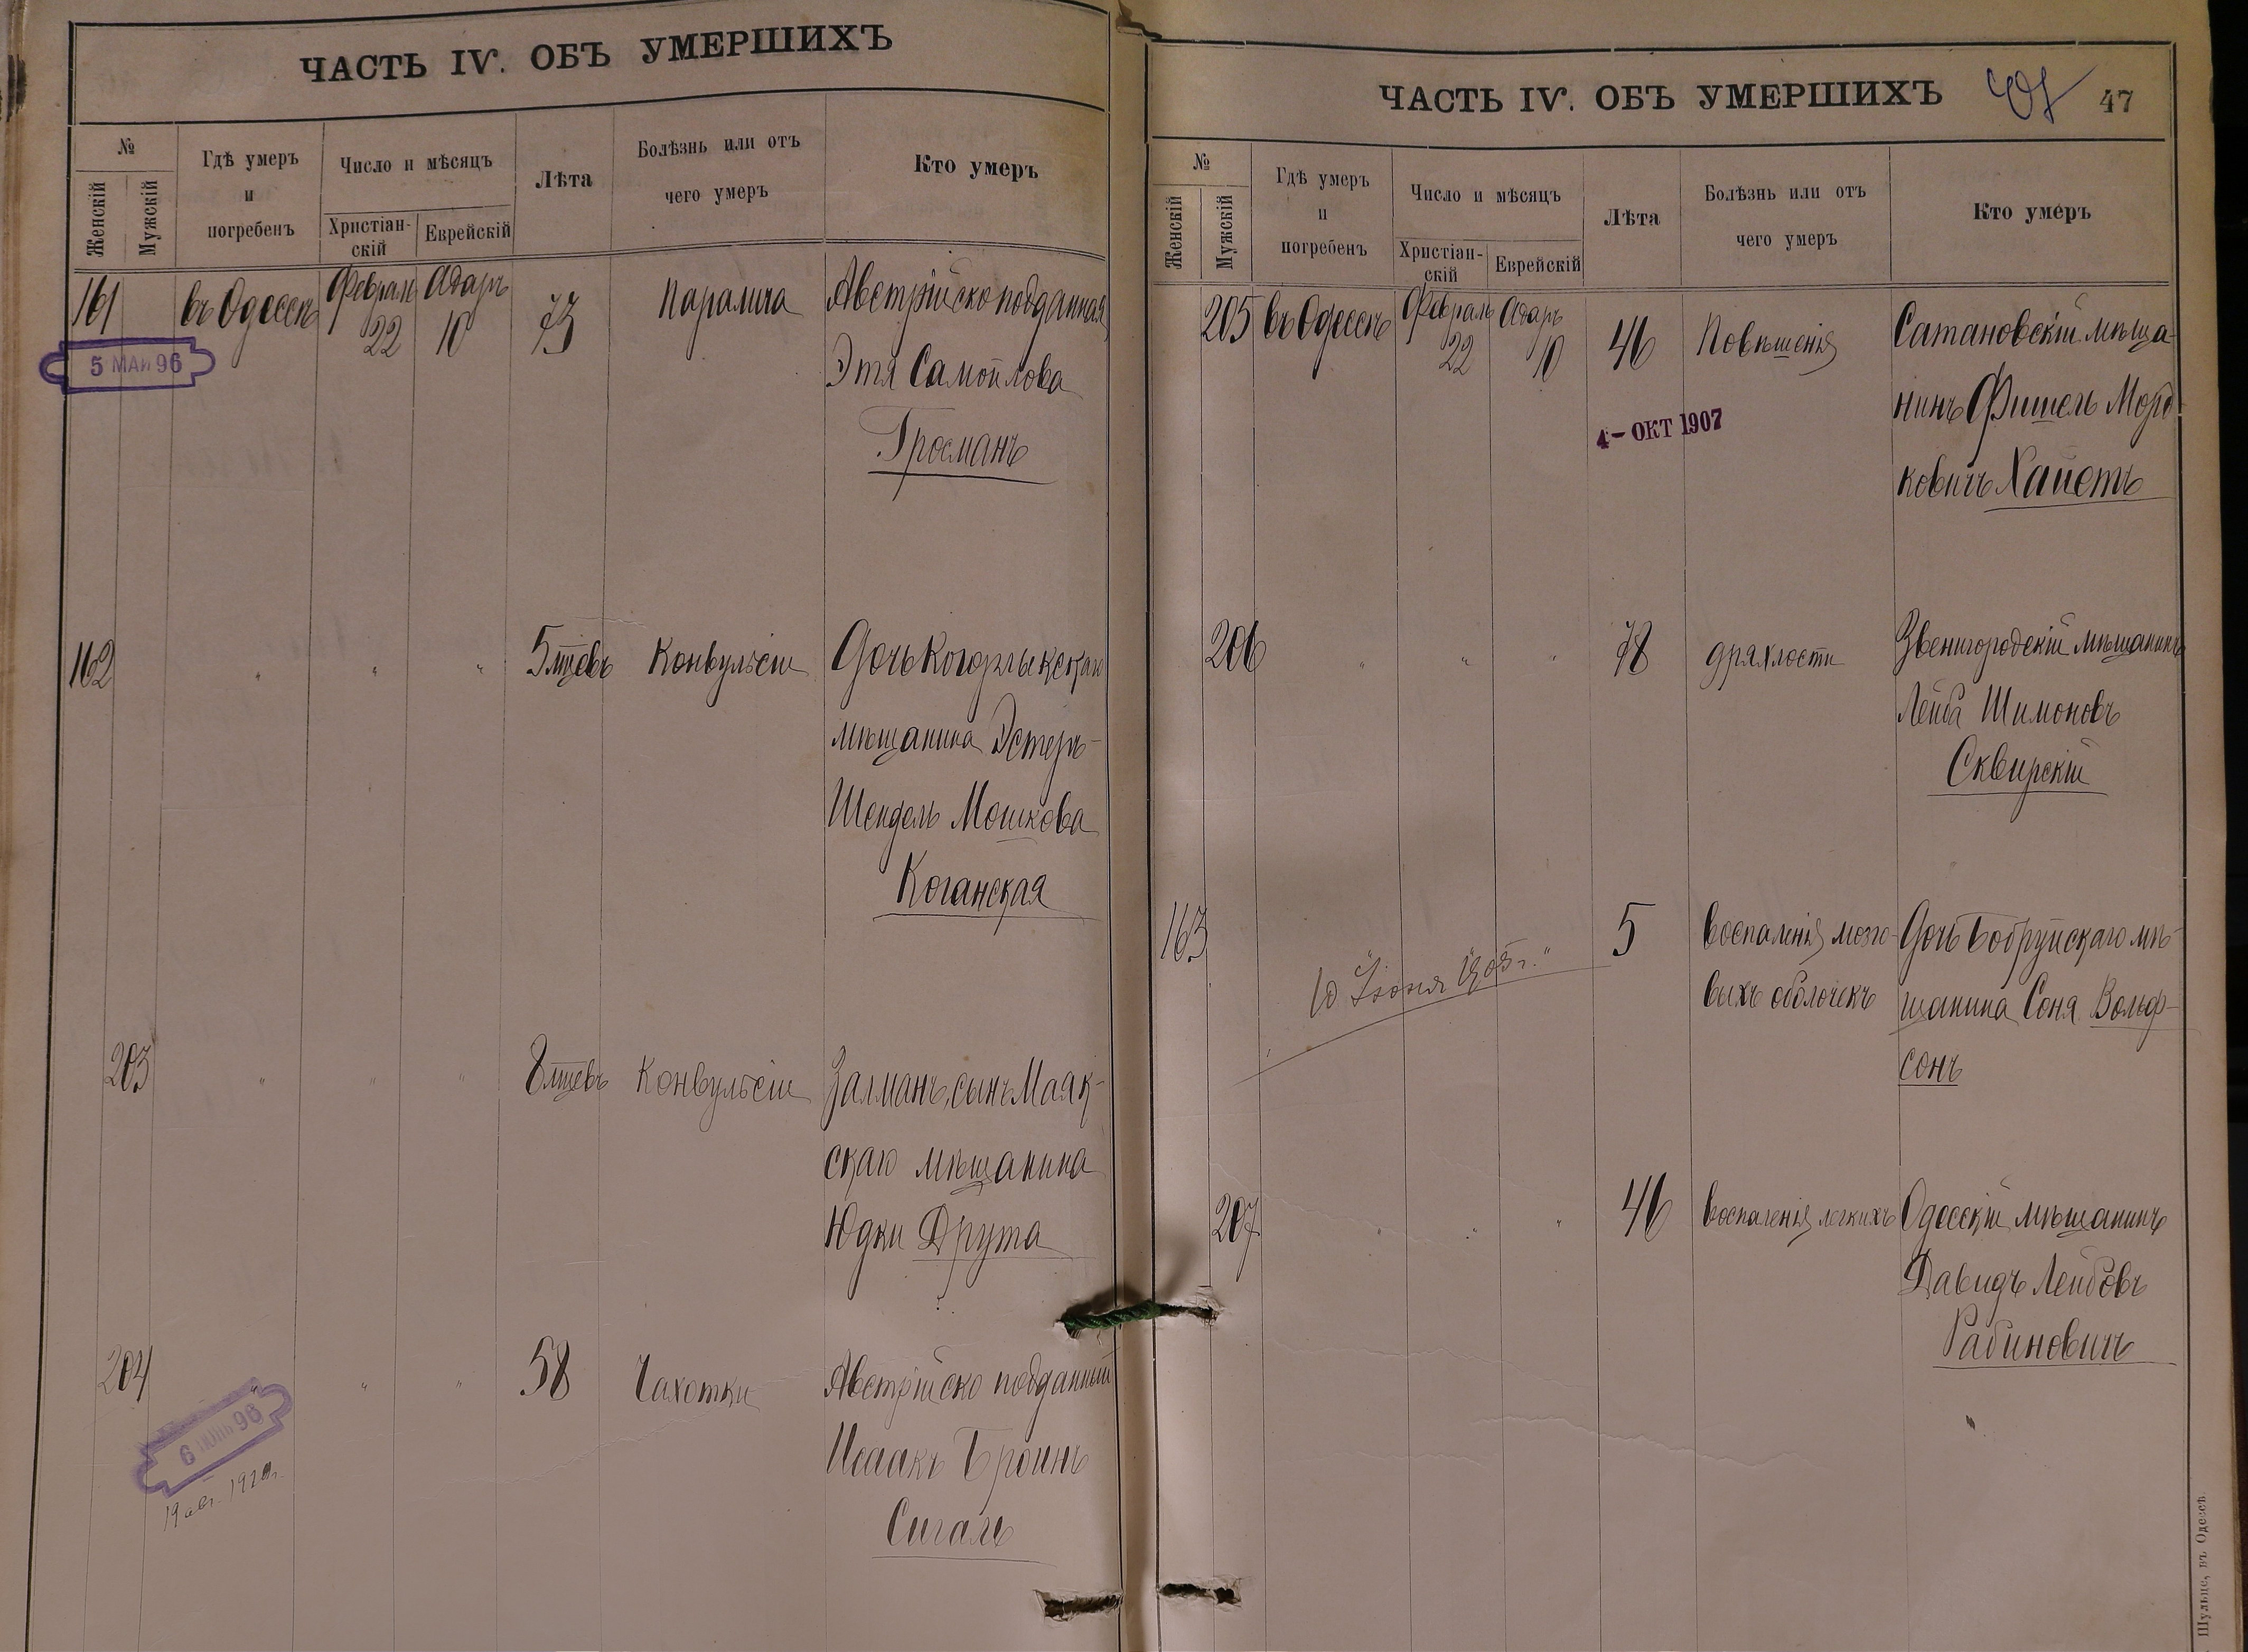 ЧАСТЬ IV. ОБЪ УМЕРШИХЪ
№
Женскій
Мужскій
Гдѣ умеръ
и
погребенъ
Число и мѣсяцъ
Христіан-
скій
Еврейскій
Лѣта
Болѣзнь или отъ
чего умеръ
Кто умеръ
161
въ Одессѣ
Февраль
22
Адаръ
10
73
Паралича
Австрійско подданная
Этя Самойлова
Гросманъ
5 МАЙ 96
162
"
"
"
5 мцевъ
Конвульсіи
Дочь Когорлыкскаго
мѣщанина Эстеръ-
Шендель Мошкова
Коганская
203
"
"
"
8 мцевъ
Конвульсіи
Залманъ, сынъ Маяк-
скаго мѣщанина
Юдки Друта
204
"
"
"
58
Чахотки
Австрійско подданный
Исаакъ Броинъ
Сигалъ
6 ІЮНЬ 96
ЧАСТЬ IV. ОБЪ УМЕРШИХЪ
47
№
Женскій
Мужскій
Гдѣ умеръ
и
погребенъ
Число и мѣсяцъ
Христіан-
скій
Еврейскій
Лѣта
Болѣзнь или отъ
чего умеръ
Кто умеръ
205
въ Одессѣ
Февраль
22
Адаръ
10
46
Повѣшенія
Сатановскій мѣща-
нинъ Фишель Морд-
ковичъ Хаиетъ
4 - ОКТ 1907
206
"
"
"
78
дряхлости
Звенигородскій мѣщанинъ
Лейба Шимоновъ
Сквирскій
163
5
Воспаленія мозго-
выхъ оболочекъ
Дочь Бобруйскаго мѣ-
щанина Соня Вольф-
сонъ
10 Іюня 1905 г.
207
"
"
"
46
Воспаленія легкихъ
Одесскій мѣщанинъ
Давидъ Лейбовъ
Рабиновичъ
Шульце, въ Одессѣ.